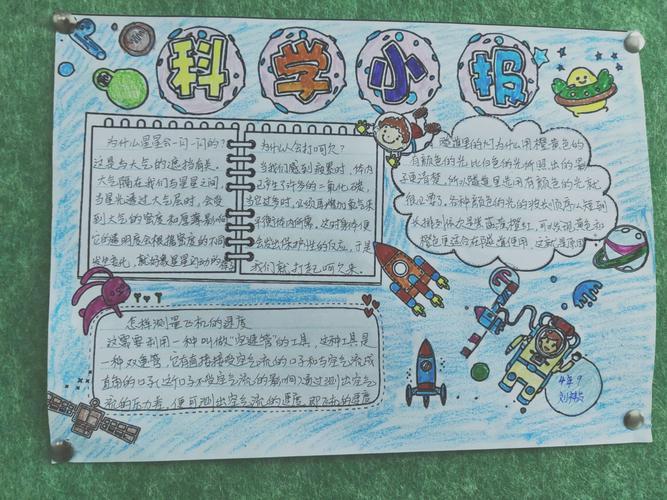 科学小报
为什么星星会一闪一闪的?
这是与大气的遮挡有关。
大气隔在我们与星星之间,
当星光透过大气层时,会受
到大气的密度和厚薄影响
它的透明度会根据密度的不同
发生变化,就好象星星闪动的样子
为什么人会打呵欠?
当我们感到疲累时,体内
已产生了许多的二氧化碳,
当它过多时,必须再增加氧气来
平衡体内所需。这时身体便
会发出保护性的反应,于是
我们就打起呵欠来。
隧道里的灯为什么用橙黄色的
有颜色的光比白色的光所照出的影
子更清楚,所以隧道里选用有颜色的光就
很必要了。各种颜色的光的波长顺序从短到
长排列依次是紫蓝
绿黄橙红,可以发现黄色和
橙色更适合在隧道使用,这就是原因
怎样测量飞机的速度
这需要利用一种叫做“空速管”的工具,这种工具是
一种双重管,它有直接接受空气流的口子和与空气流成
直角的口子(这个口子不受空气流的影响)通过测出空气
流的压力差,便可测出空气流的速度,即飞机的速度
4年7